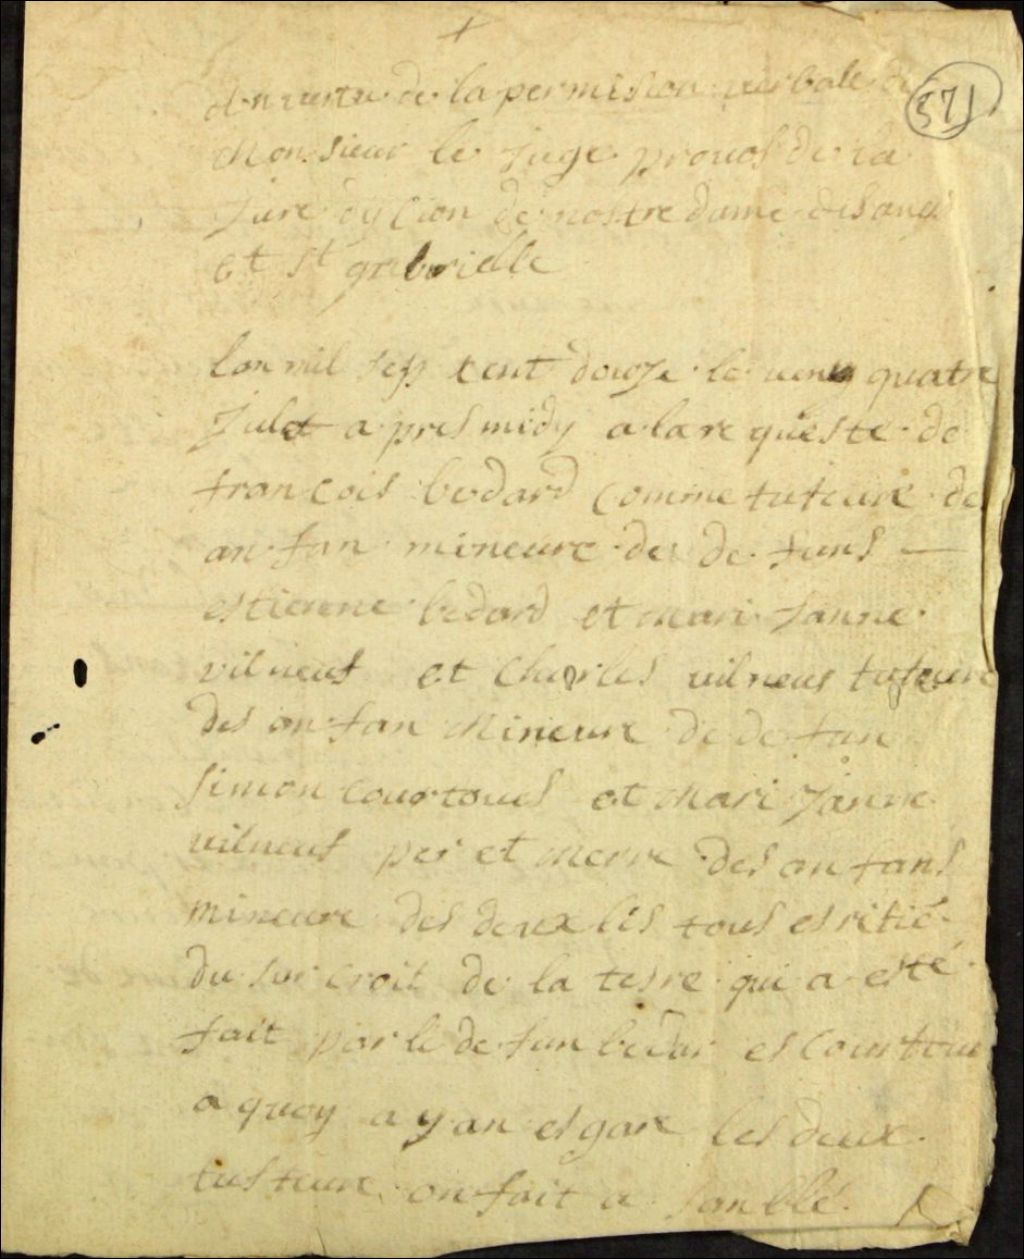 +
571
En vertu de la permision verbale de
Monsieur le Juge provos de la
Juredyscion de nostre dame des ange
et St gabrielle
lan mil sept cent douze le vent quatre
Julet apres midy a la requeste de
francois bedard comme tuteure des
anfan mineure de defuns
estienne bedard et mari Janne
vilneuf et Charles vilneuf tuteure
des anfan Mineure de defun
simon courtoues et Mari Janne
vilneuf per et merre des anfans
mineure des deux lis tous esritié
du surcroit de la terre qui a esté
fait par le defun bedar es Courtoue
a quoy ayan esgare les deux
tusteure on fait asamblé